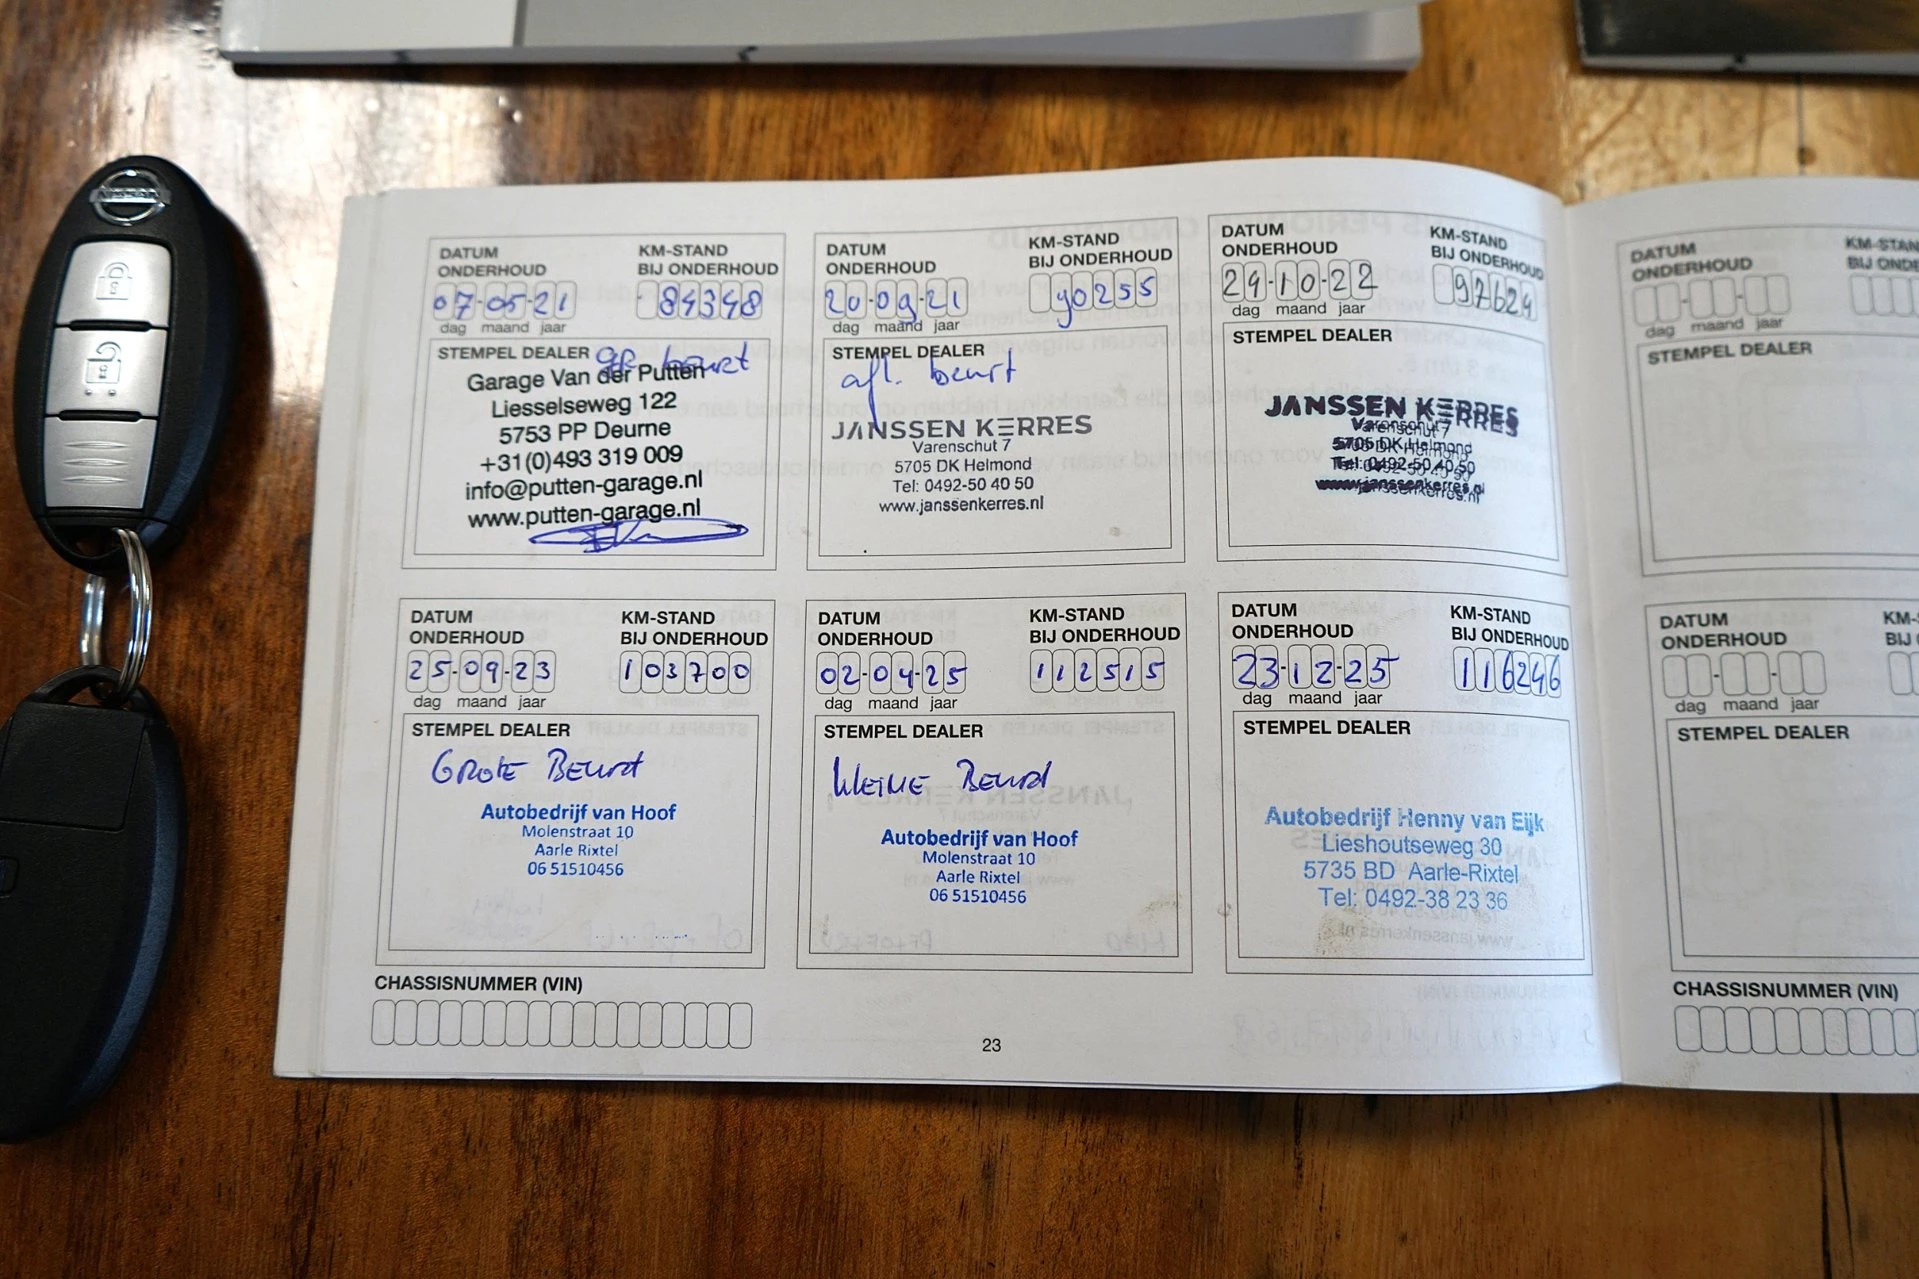 NISSAN
DATUM
ONDERHOUD
KM-STAND
BIJ ONDERHOUD
07-05-21
84348
dag maand jaar
STEMPEL DEALER
gr. beurt
Garage Van der Putten
Liesselseweg 122
5753 PP Deurne
+31(0)493 319 009
info@putten-garage.nl
www.putten-garage.nl
DATUM
ONDERHOUD
KM-STAND
BIJ ONDERHOUD
20-09-21
90255
dag maand jaar
STEMPEL DEALER
afl. beurt
JANSSEN KERRES
Varenschut 7
5705 DK Helmond
Tel: 0492-50 40 50
www.janssenkerres.nl
DATUM
ONDERHOUD
KM-STAND
BIJ ONDERHOUD
24-10-22
97624
dag maand jaar
STEMPEL DEALER
JANSSEN KERRES
Varenschut 7
5705 DK Helmond
Tel: 0492-50 40 50
www.janssenkerres.nl
DATUM
ONDERHOUD
KM-STAN
BIJ ONDE
dag maand jaar
STEMPEL DEALER
DATUM
ONDERHOUD
KM-STAND
BIJ ONDERHOUD
25-09-23
103700
dag maand jaar
STEMPEL DEALER
GROTE BEURT
Autobedrijf van Hoof
Molenstraat 10
Aarle Rixtel
06 51510456
DATUM
ONDERHOUD
KM-STAND
BIJ ONDERHOUD
02-04-25
112515
dag maand jaar
STEMPEL DEALER
KLEINE BEURD
Autobedrijf van Hoof
Molenstraat 10
Aarle Rixtel
06 51510456
DATUM
ONDERHOUD
KM-STAND
BIJ ONDERHOUD
23-12-25
116246
dag maand jaar
STEMPEL DEALER
Autobedrijf Henny van Eijk
Lieshoutseweg 30
5735 BD Aarle-Rixtel
Tel: 0492-38 23 36
DATUM
ONDERHOUD
KM-
BIJ
dag maand jaar
STEMPEL DEALER
CHASSISNUMMER (VIN)
23
CHASSISNUMMER (VIN)